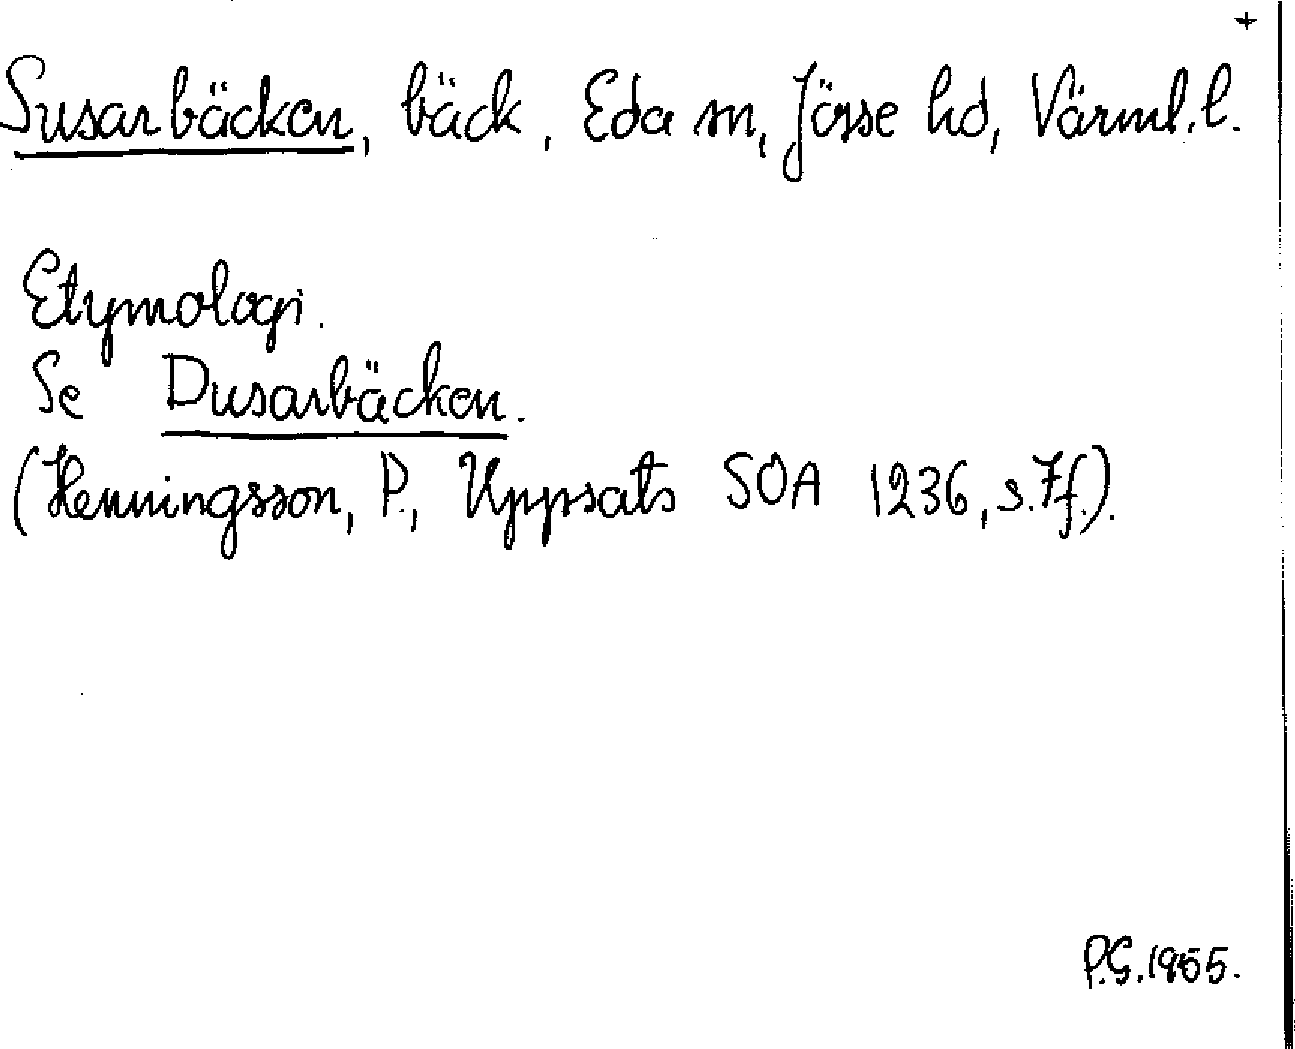 +
Susarbäcken, bäck, Eda sn, Jösse hd, Värml. l.
Etymologi.
Se Dusarbäcken.
(Henningsson, P., Uppsats SOA 1236, s. 7f.).
P.G. 1965.